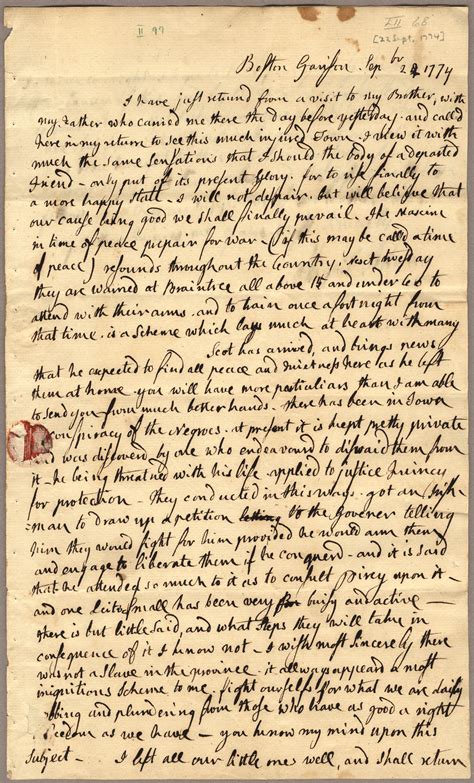 II 97
LII 68
[22 Sept. 1774]
Boston Garison Sepbr 22 1774
I have just returnd from a visit to my Brother, with
my Father who carried me there the day before yesterday, and call'd
here in my return to see this much injured Town. I view it with
much the same sensations that I should the body of a departed
Friend – only put of its present Glory, for to rise finally to
a more happy State – I will not despair, but will believe that
our cause being good we shall finally prevail. The Maxim
in time of peace prepair for war – (if this may be calld a time
of peace) resounds throughout the Country. Next tuesday
they are warned at Braintree all above 15 and under 60 to
attend with their arms, and to train once a fortnight from
that time, is a Scheme which lays much at heart with many
Scot has arrived, and brings news
that he expected to find all peace and Quietness here as he left
them at home – you will have more particuliars than I am able
to send you from much better hands – there has been in Town
conspiracy of the Negroes. at present it is kept pretty private
and was discoverd by one who endeavourd to diswaid them from
it – he being threatned with his life applied to justice Quincy
for protection – They conducted in this way – got an Irish-
man to draw up a petition to the Govener telling
him they would fight for him provided he would arm them
and engage to liberate them if he conquerd – and it is said
that he attended so much to it as to consult Pircy upon it –
and one Leit Small has been very busy and active –
there is but little said, and what Steps they will take in
consequence of it I know not – I wish most sincerely there
was not a Slave in the province. it allways appeard a most
iniquitious Scheme to me. fight ourselfs for what we are daily
robing and plundering from those who have as good a right
freedom as we have – you know my mind upon this
Subject – I left all our little one well, and shall return